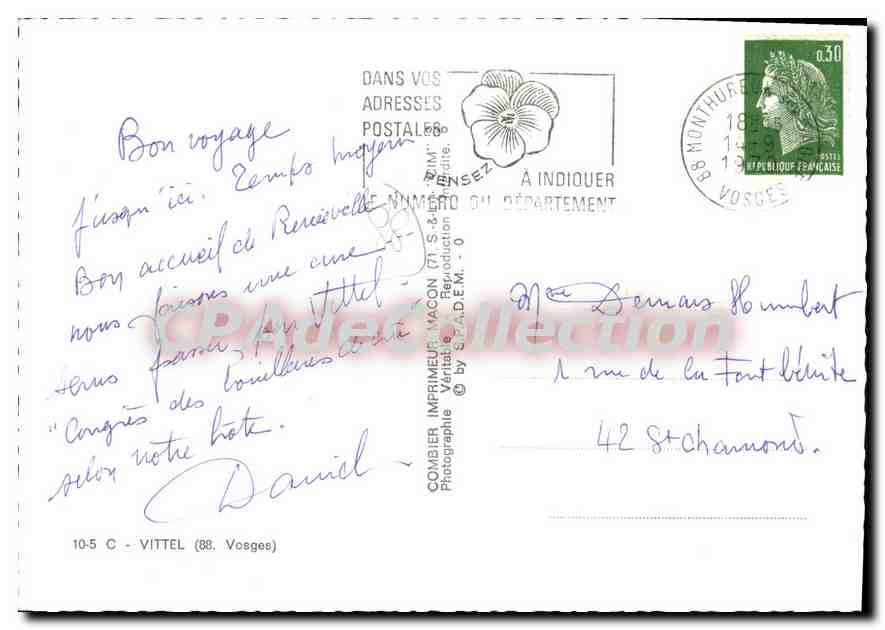 DANS VOS
ADRESSES
POSTALES
PENSEZ
À INDIQUER
LE NUMÉRO DU DÉPARTEMENT
88 MONTHUREUX
18
14-9
VOSGES
0,30
POSTES
REPUBLIQUE FRANÇAISE
Bon voyage
jusqu'ici. Temps moyen
Bon accueil de
nous faisons une cure
sans passer par Vittel
"Congrès des
selon notre hôte.
Daniel
88
10-5 C - VITTEL (88. Vosges)
COMBIER IMPRIMEUR MACON (71. S.-&-L.) "CIM"
Photographie Véritable - Reproduction interdite.
© by S.P.A.D.E.M. - 0
Mme Humbert
1 rue de la Font bénite
42 St Chamond.
CPAdeCollection